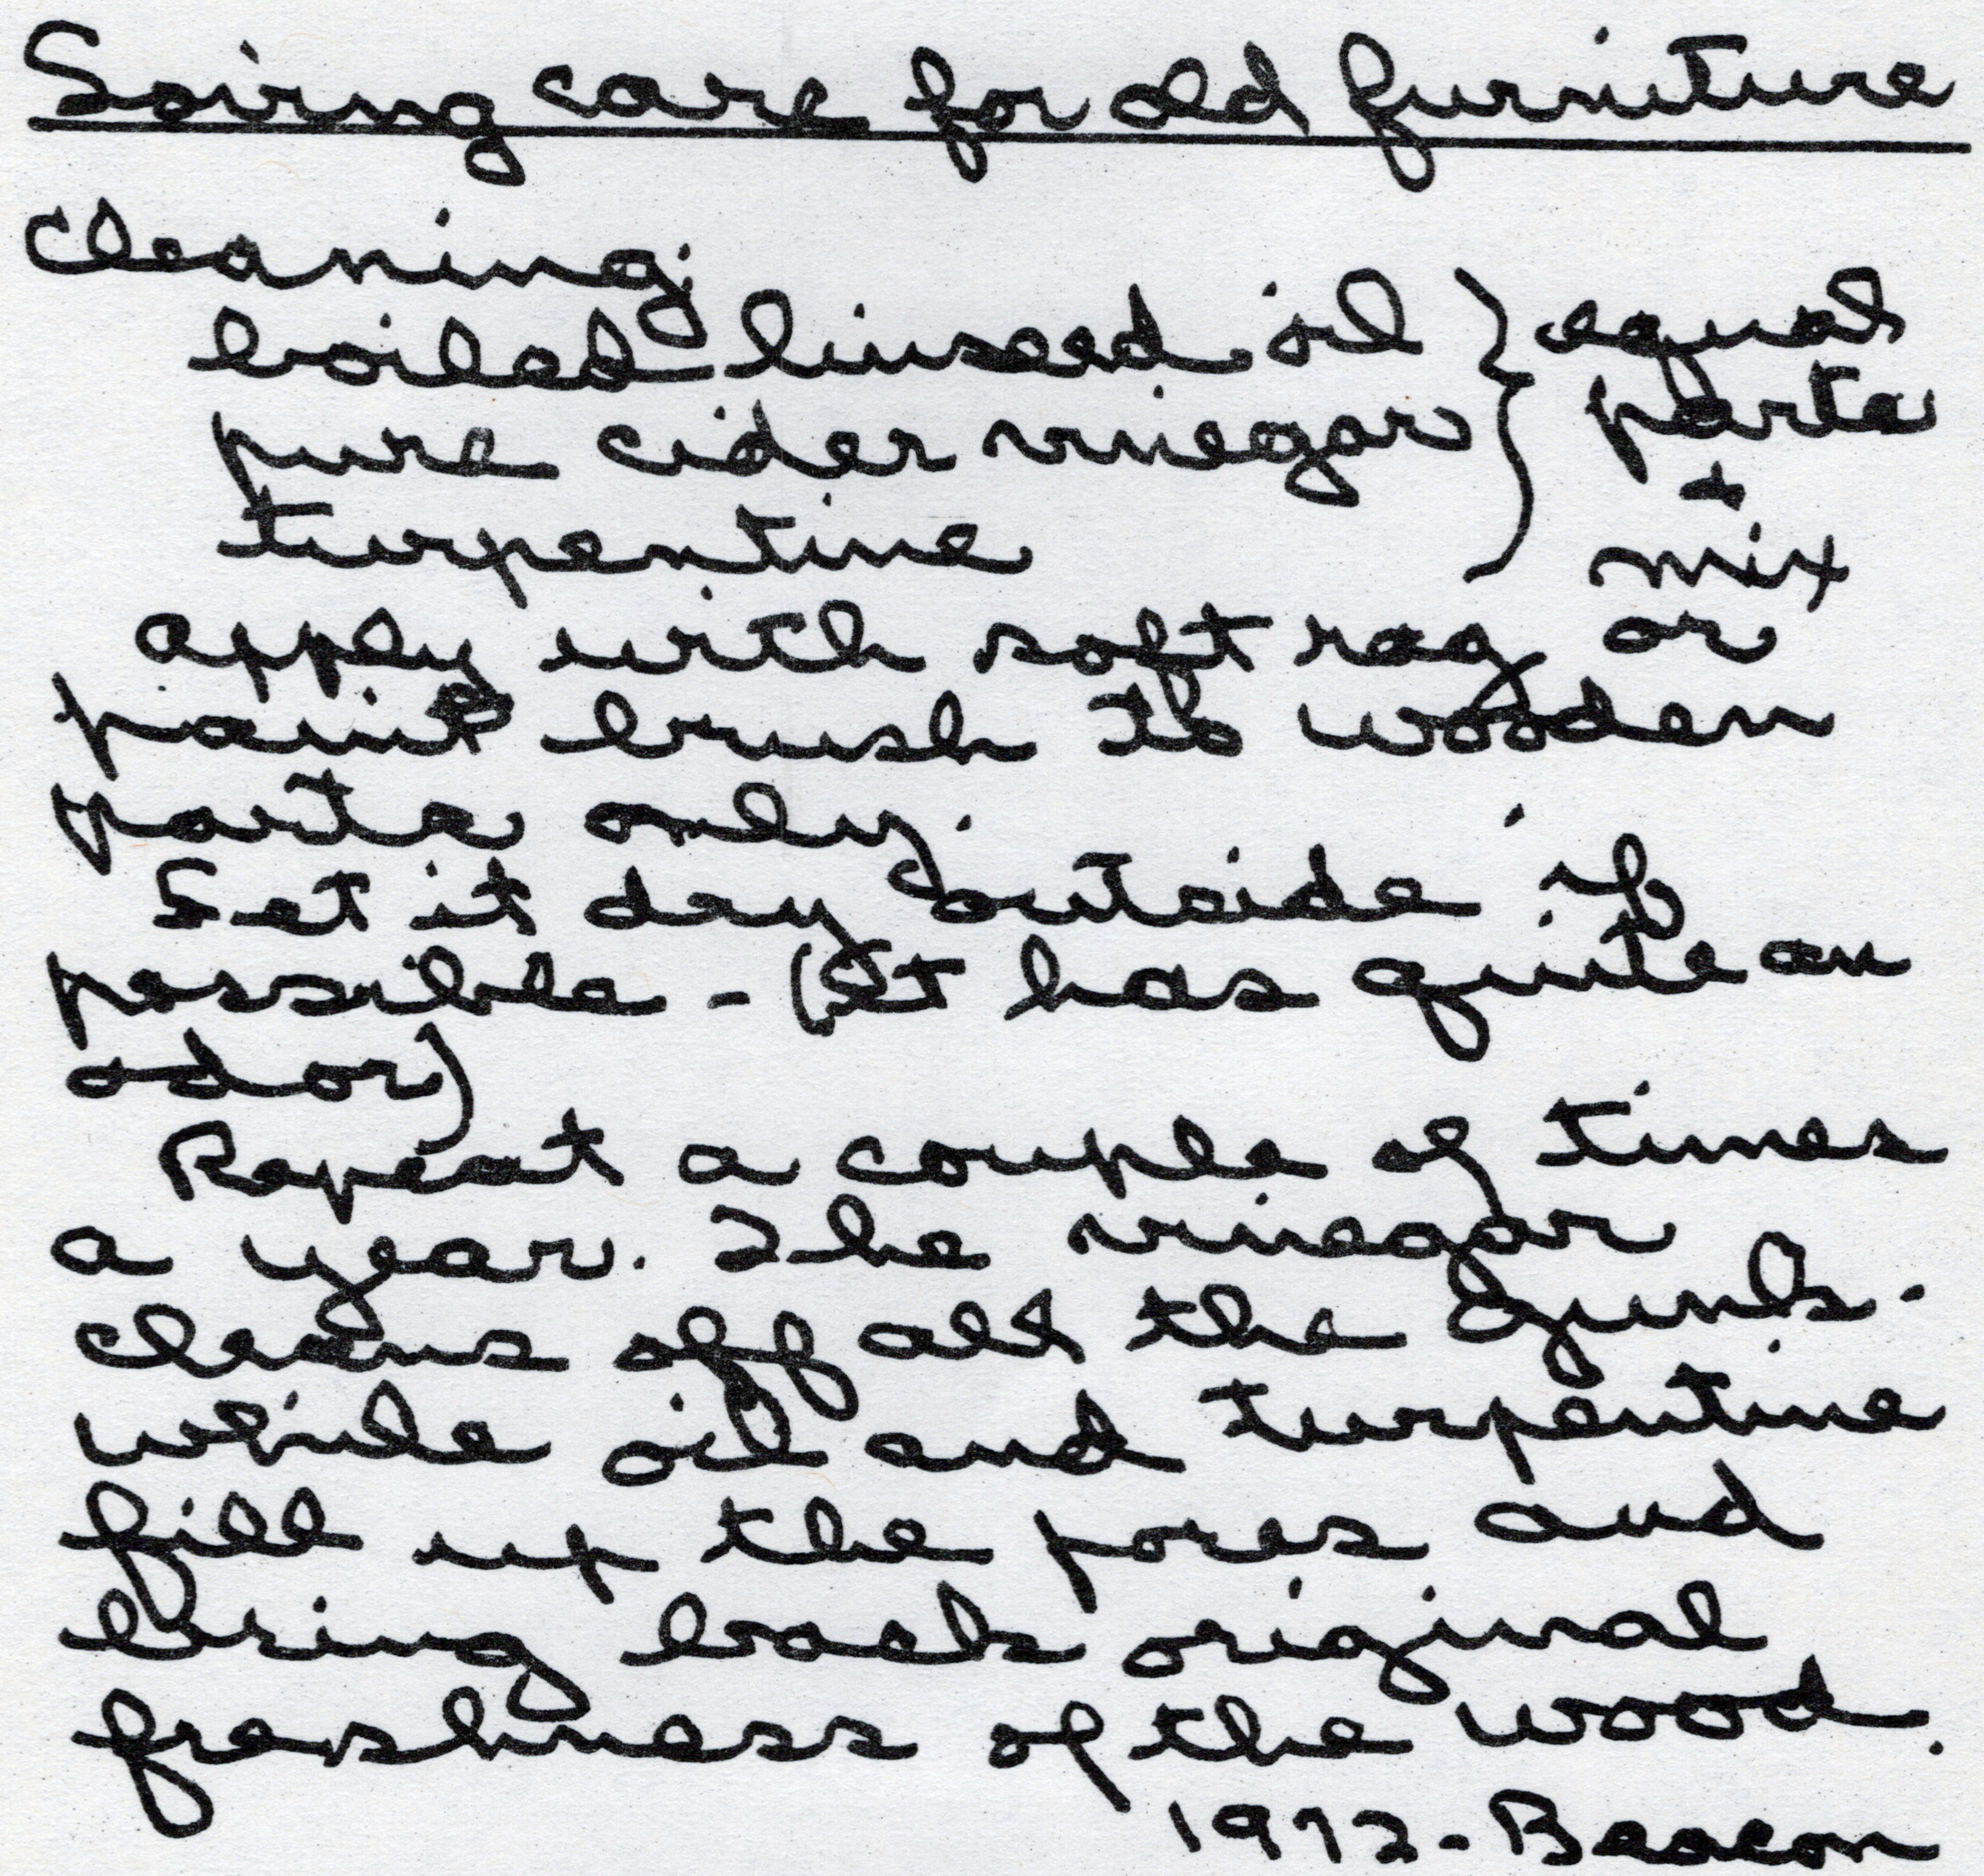 Soving care for old furniture
Cleaning:
boiled linseed oil } equal
pure cider vinegar } parts
turpentine } + mix
apply with soft rag or
paint brush to wooden
parts only.
Set it dry outside if
possible - (It has quite an
odor)
Repeat a couple of times
a year. The vinegar
cleans off all the gunk.
while oil and turpentine
fill up the pores and
bring back original
freshness of the wood.
1972 - Beacon